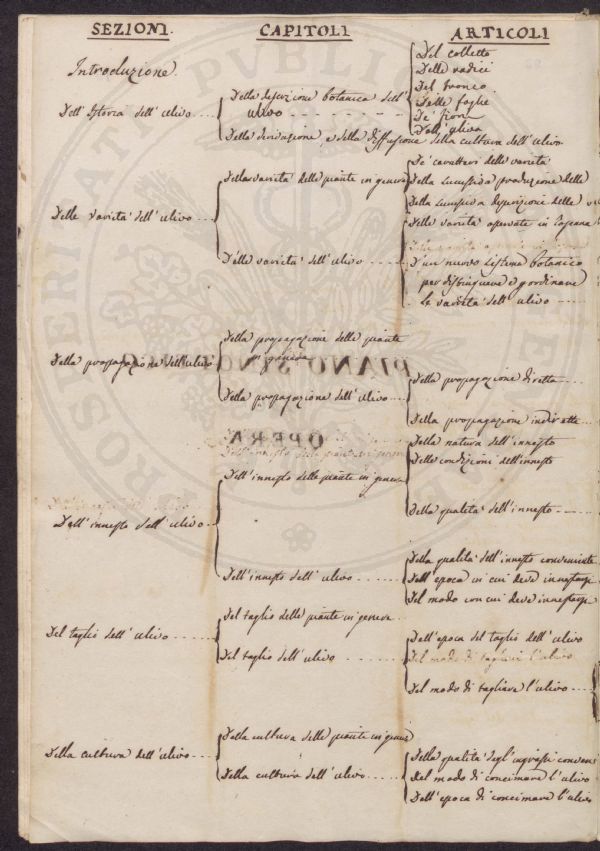 SEZIONI.
CAPITOLI
ARTICOLI
Introduzione.
Dell'Istoria dell'ulivo
Della descrizione botanica dell'
ulivo
Del colletto
Delle radici
Del tronco.
Delle foglie
De' fiori
Dell'uliva
Della derivazione, e della diffusione della cultura dell'ulivo
Delle varietà dell'ulivo
Della varietà delle piante in genere
De' caratteri delle varietà
Della successiva produzione delle
Della successiva descrizione delle
Delle varietà dell'ulivo
Delle varietà osservate in Toscana
D'un nuovo sistema botanico
per distinguere e coordinare
le varietà dell'ulivo
Della propagazione dell'ulivo
Della propagazione delle piante
in genere
Della propagazione dell'ulivo
Della propagazione diretta
Della propagazione indiretta
Dell'innesto dell'ulivo
Dell'innesto delle piante in genere
Della natura dell'innesto
Delle condizioni dell'innesto
Della qualità dell'innesto
Dell'innesto dell'ulivo
Della qualità dell'innesto conveniente
Dell'epoca in cui deve innestarsi
Del modo con cui deve innestarsi
Del taglio dell'ulivo
Del taglio delle piante in genere
Del taglio dell'ulivo
Dell'epoca del taglio dell'ulivo
Del modo di tagliare l'ulivo
Del modo di tagliare l'ulivo
Della cultura dell'ulivo
Della cultura delle piante in genere
Della cultura dell'ulivo
Della qualità degl'ingrassi
Del modo di concimare l'ulivo
Dell'epoca di concimare l'ulivo